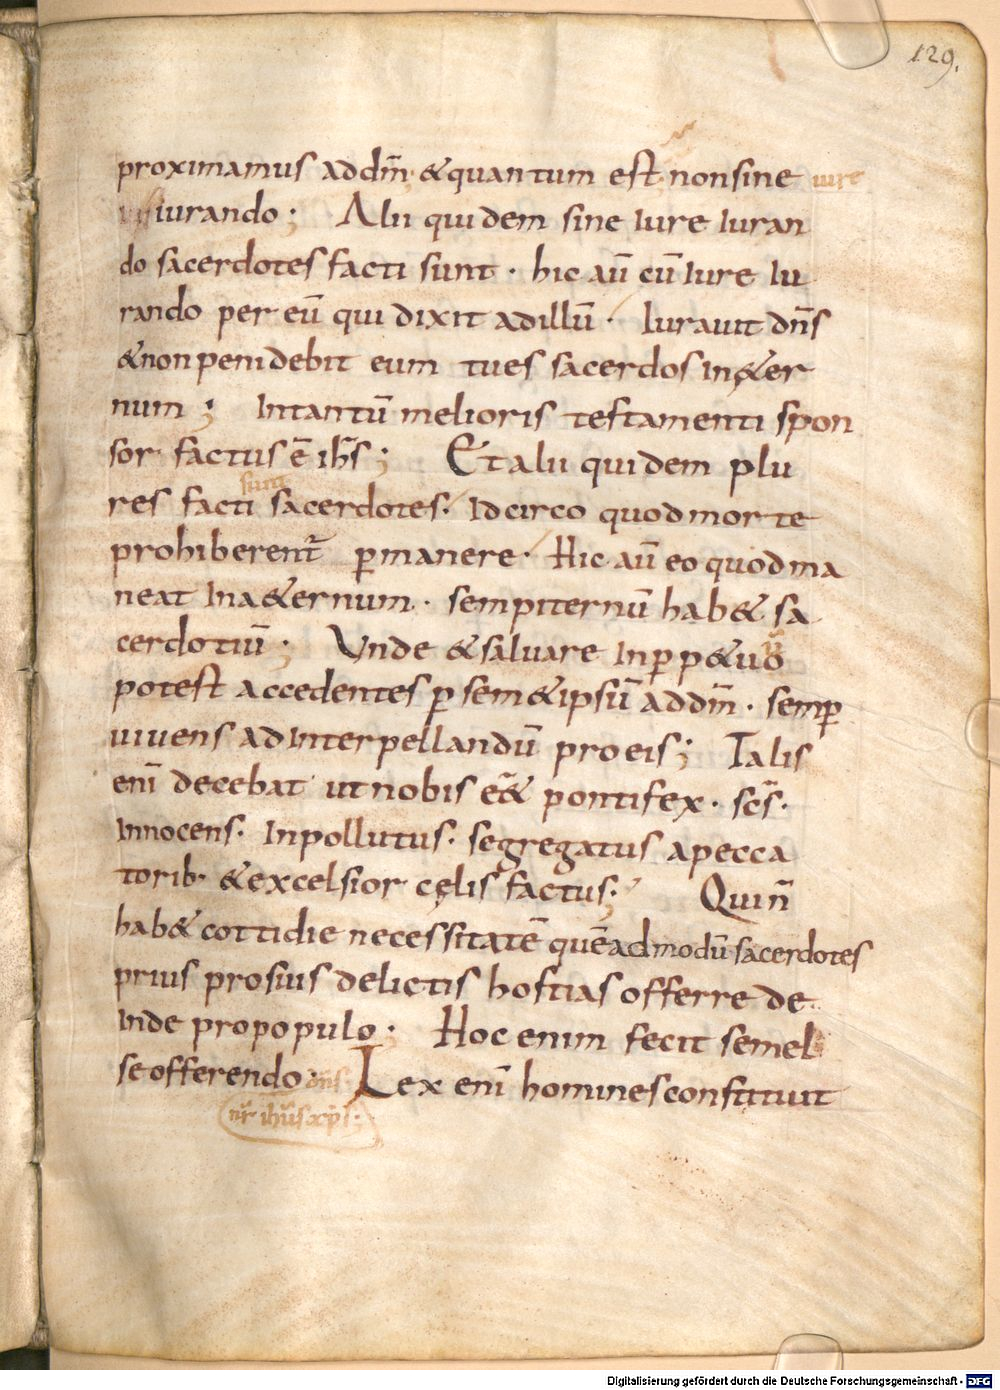 129.
proximamus ad dm̄ & quantum est non sine iure
iurando; Alii quidem sine Iure Iuran
do sacerdotes facti sunt. hic aū cū Iure Iu
rando per eū qui dixit ad illū. Iurauit dn̄s
& non penidebit eum tu es sacerdos In &er
num; Intantū melioris testamenti spon
sor factus ē ih̄s; Et alii quidem plu
sunt
res facti sacerdotes. Idcirco quod morte
prohiberent̄ ꝑmanere. Hic aū eo quod ma
neat In a&ernum. sempiternū hab& sa
cerdotiū; Vnde & saluare Inꝑp&uo
potest accedentes ꝑ sem&ipsū ad dm̄. semꝑ
uiuens ad Interpellandū pro eis; Talis
eni̅ decebat ut nobis e&̄ pontifex. sc̄s.
Innocens. Inpollutus. segregatus a pecca
torib. & excelsior cęlis factus. Qui n̄
hab& cottidie necessitatē quēadmodū sacerdotes
prius pro suis delictis hostias offerre de
Inde pro populo; Hoc enim fecit semel
se offerendo. dn̄s Lex eni̅ homines constituit
nr̄ ih̄us xp̄s;
Digitalisierung gefördert durch die Deutsche Forschungsgemeinschaft - DFG